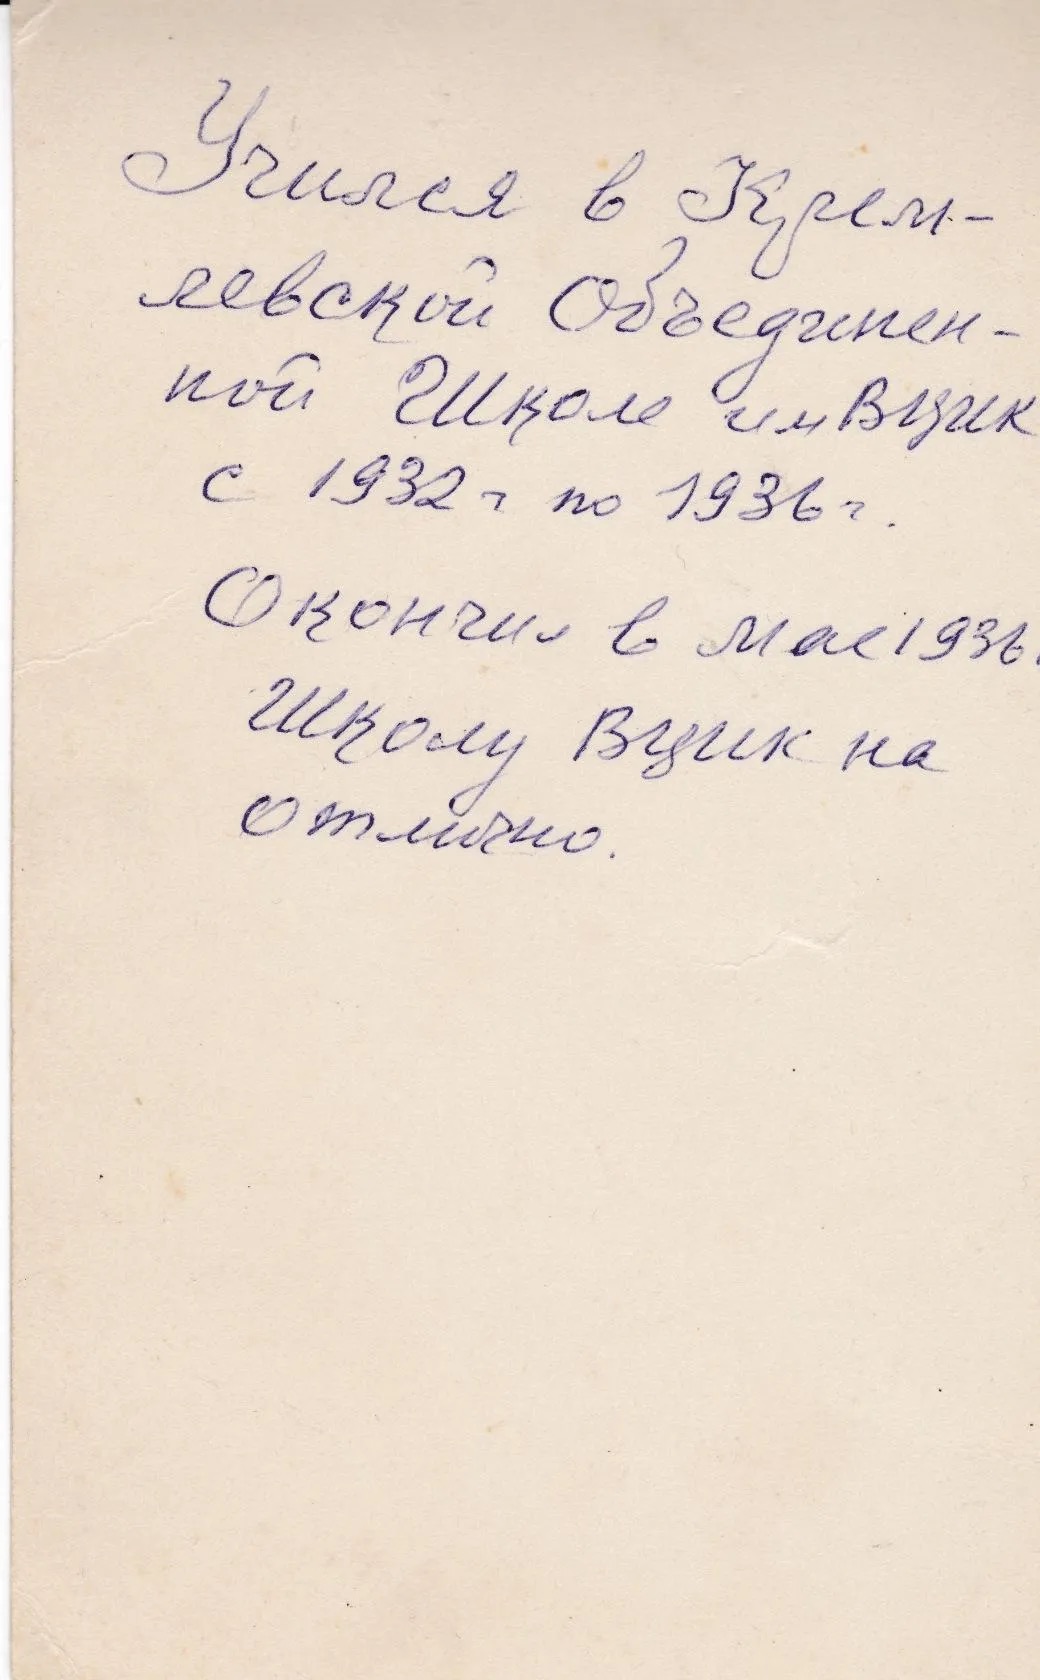 Учился в Крем-
левской Объединен-
ной Школе им ВЦИК
с 1932 г по 1936 г.
Окончил в мае 1936
Школу ВЦИК на
отлично.